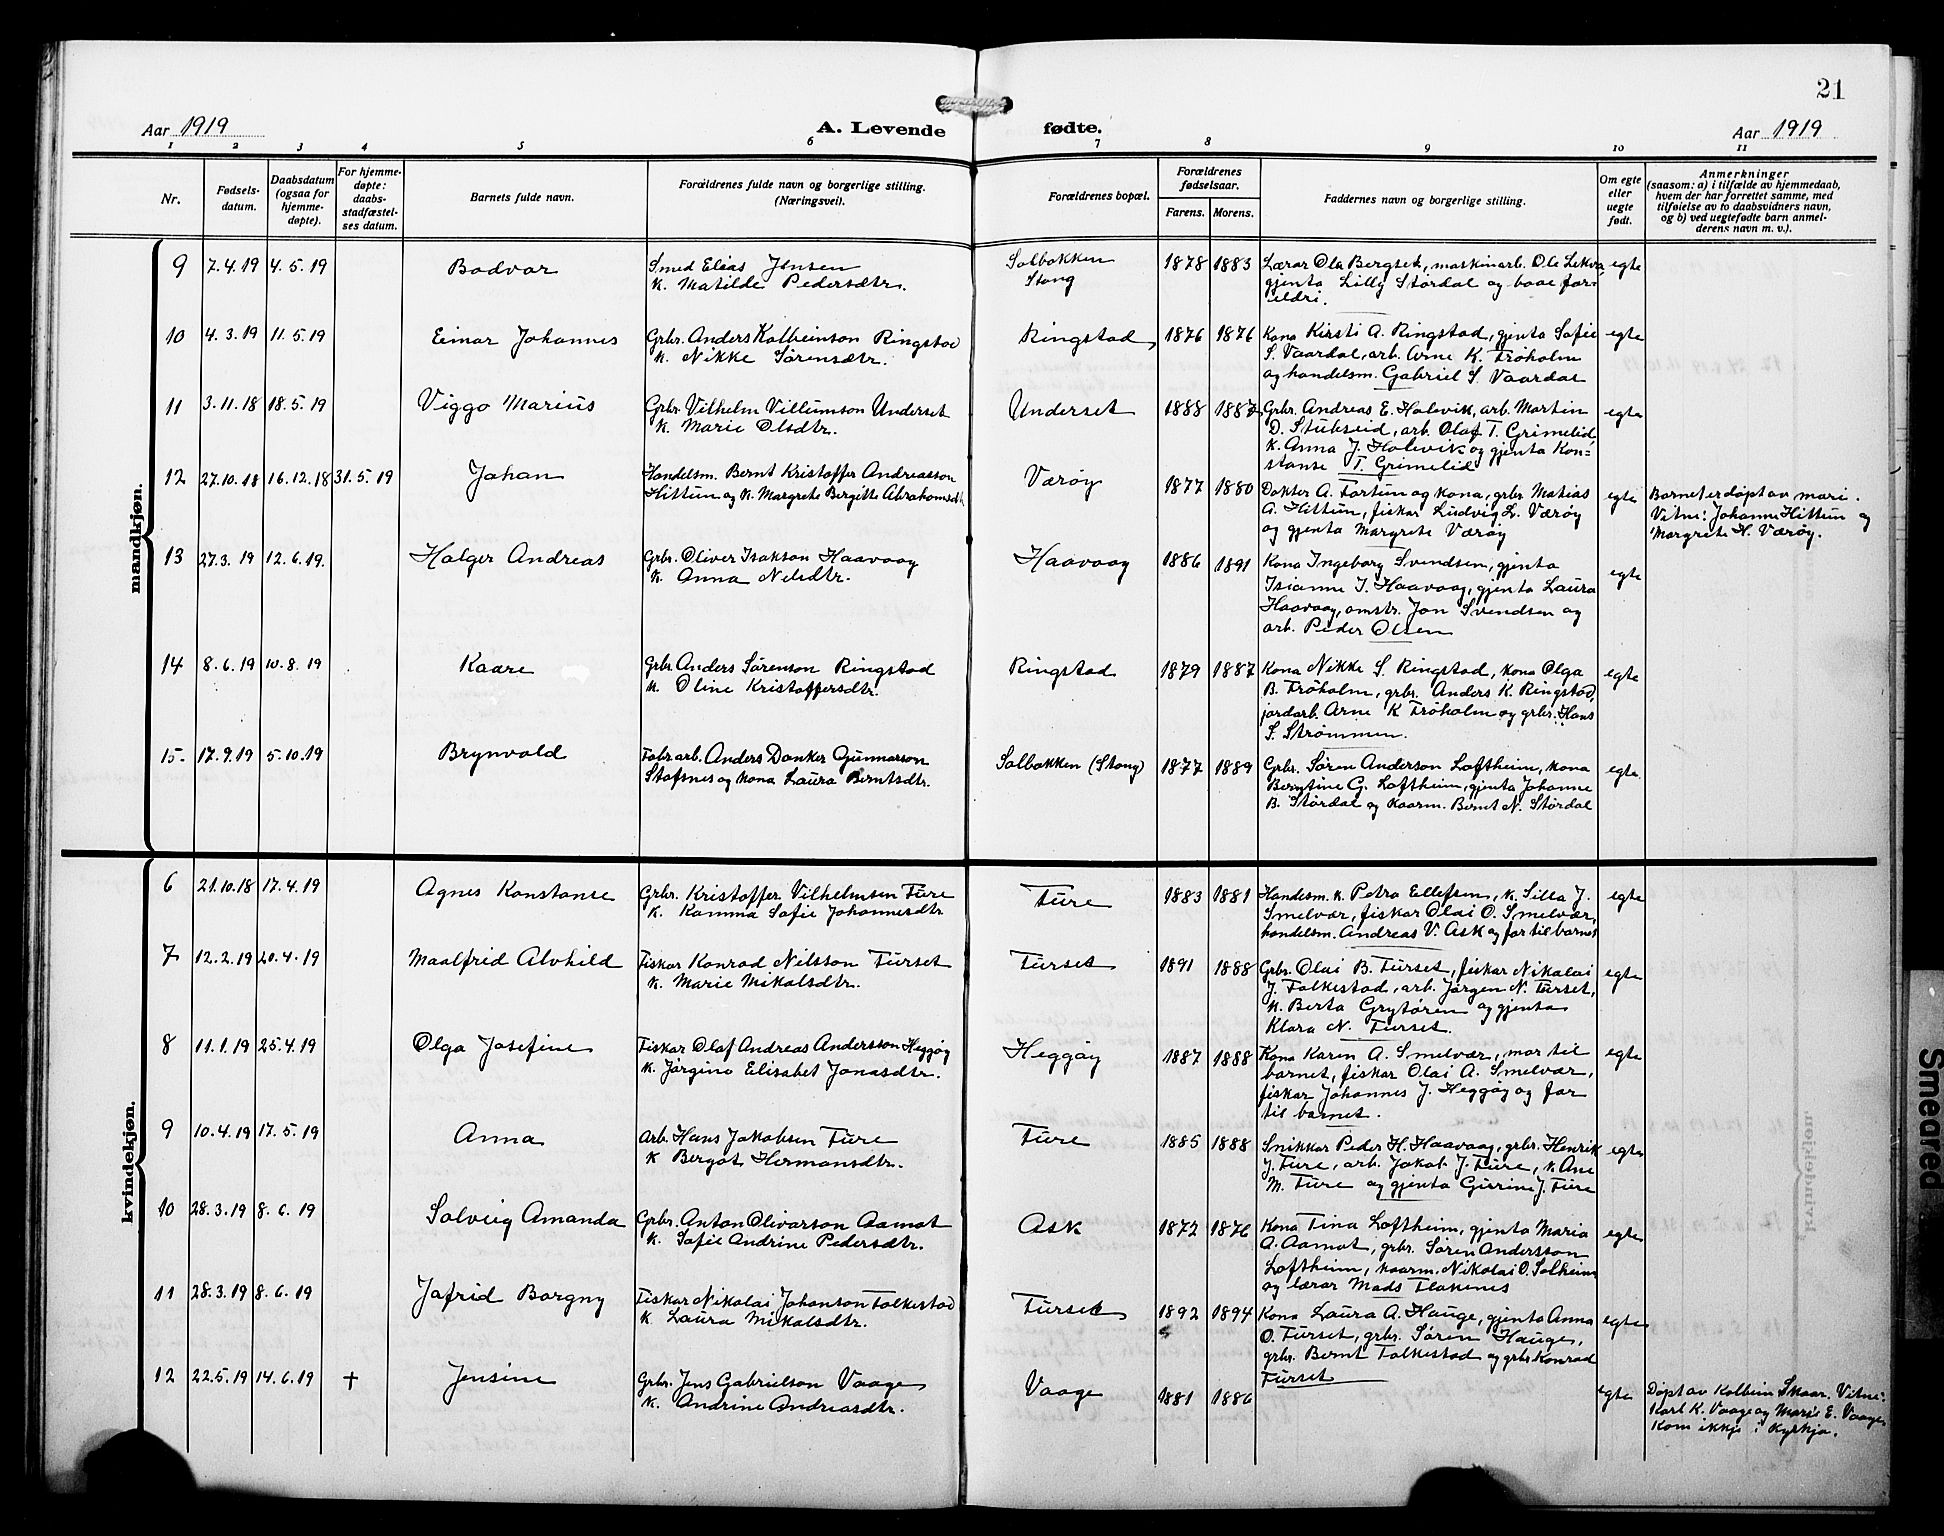 21
Aar 1919
A. Levende fødte.
Aar 1919
1 2 3 4 5 6 7 8 9 10 11
Nr.
Fødsels-
datum.
Daabsdatum
(ogsaa for
hjemme-
døpte).
For hjemme-
døpte:
daabs-
stadfæstel-
ses datum.
Barnets fulde navn.
Forældrenes fulde navn og borgerlige stilling.
(Næringsvei).
Forældrenes bopæl.
Forældrenes
fødselsaar.
Farens. Morens.
Faddernes navn og borgerlige stilling.
Om egte
eller
uegte
født.
Anmerkninger
(saasom: a) i tilfælde av hjemmedaab,
hvem der har forrettet samme, med
tilføielse av to daabsvidners navn,
og b) ved uegtefødte barn anmel-
derens navn m. v.).
mandkjøn.
9 7.4.19 4.5.19 Bodvar
Smed Elias Jensen
k. Matilde Pedersdtr.
Solbakken
Stong
1878 1883
Lærar Ola Bergset, maskinarb. Ole Lekva
gjenta Lilly Størdal og baae for-
eldri.
egte
10 4.3.19 11.5.19 Einar Johannes
Grbr. Anders Kolbeinson Ringstad
k. Nikke Sørensdtr.
Ringstad
1876 1876
Kona Kirsti A. Ringstad, gjenta Sofie
S. Vaardal, arb. Arne K. Frøholm
og handelsm. Gabriel S. Vaardal
egte
11 3.11.18 18.5.19 Viggo Marius
Grbr. Vilhelm Villumson Underset
k. Marie Olsdtr.
Underset
1888 1887
Grbr. Andreas E. Holevik, arb. Martin
D. Stubseid, arb. Olaf T. Grimelid,
k. Anna J. Holevik og gjenta Kon-
stanse T. Grimelid
egte
12 27.10.18 16.12.18 31.5.19 Johan
Handelsm. Bernt Kristoffer Andreasson
Hittun og k. Margrete Bergitte Abrahamsdtr
Værøy
1877 1880
Dokter A. Fortun og kona, grbr Matias
A. Hittun, fiskar Ludvig L. Værøy
og gjenta Margrete Værøy
egte
Barnet er døpt av mori.
Vitne: Johanne Hittun og
Margrete H. Værøy.
13 27.3.19 12.6.19. Holger Andreas
Grbr. Oliver Isakson Haavaag
k. Anna Nilsdtr.
Haavaag
1886 1891
Kona Ingeborg Svendsen, gjenta
Isianne I. Haavaag, gjenta Laura
Haavaag, omstr. Jon Svendsen og
arb. Peder Olsen
egte
14 8.6.19 10.8.19 Kaare
Grbr Anders Sørenson Ringstad
k. Oline Kristoffersdtr.
Ringstad
1879 1887
Kona Nikke S. Ringstad, kona Olga
B. Frøholm, grbr. Anders K. Ringstad,
jordarb. Arne K Frøholm og grbr. Hans
S. Strømmen.
egte
15. 17.9.19 5.10.19 Brynvald
Fabr.arb. Anders Danker Gunnarson
Stafsnes og kona Laura Berntsdtr.
Solbakken (Stong)
1877 1889
Grbr. Søren Anderson Loftheim, kona
Berntine G. Loftheim, gjenta Johanne
B. Størdal og kaarm. Bernt N. Størdal
egte
kvindekjøn.
6 21.10.18 17.4.19 Agnes Konstanse
Grbr. Kristoffer Vilhelmsen Fure
k. Kamma Sofie Johannesdtr
Fure
1883 1881
Handesm. k. Petra Ellefsen, k. Silla J.
Smelvær, fiskar Olai O. Smelvær,
handelsm. Andreas V. Ask og far til barnet
egte
7 12.2.19 20.4.19 Maalfrid Alvhild
Fiskar Konrad Nilsson Furset
k. Marie Mikalsdtr.
Furset
1891 1888
Grbr. Olai B. Furset, fiskar Nikolai
J. Folkestad, arb. Jørgen N. Furset,
k. Berta Grytøren og gjenta
Klara N. Furset.
egte
8 11.1.19 25.4.19 Olga Josefine
Fiskar Olaf Andreas Andersson Heggøy
k. Jørgine Elisabet Jonasdtr.
Heggøy
1887 1888
Kona Karen A. Smelvær, mor til
barnet, fiskar Olai A. Smelvær,
fiskar Johannes J. Heggøy og far
til barnet.
egte
9 10.4.19 17.5.19 Anna
Arb. Hans Jakobsen Fure
k Bergat Hermansdtr.
Fure
1885 1888
Snikkar Peder H. Haavaag, grbr. Henrik
J. Fure, arb. Jakob J. Fure, k. Ane
M. Fure og gjenta Gurine J. Fure
egte
10 28.3.19 8.6.19 Solveig Amanda
Grbr. Anton Olivarson Aamot
k. Sofie Andrine Pedersdtr.
Ask
1872 1876
Kona Tina Loftheim, gjenta Maria
A. Aamot, grbr. Søren Andersson
Loftheim, kaarm. Nikolai O. Solheim
og lærar Mads Flokenes
egte
11 28.3.19 8.6.19 Jofrid Borgny
Fiskar Nikolai Johanson Folkestad
k. Laura Mikalsdtr.
Furset
1892 1894
Kona Laura A. Hauge, gjenta Anna
O. Furset, grbr. Søren Hauge,
grbr. Bernt Folkestad og grbr Konrad
Furset
egte
12 22.5.19 14.6.19 + Jensine
Grbr. Jens Gabrielson Vaage
k. Andrine Andreasdtr.
Vaage
1881 1886
egte
Døpt av Kolbein Skaar. Vitne:
Karl K. Vaage og Marie E. Vaage.
Kom ikkje i kyrkja.
Smeared